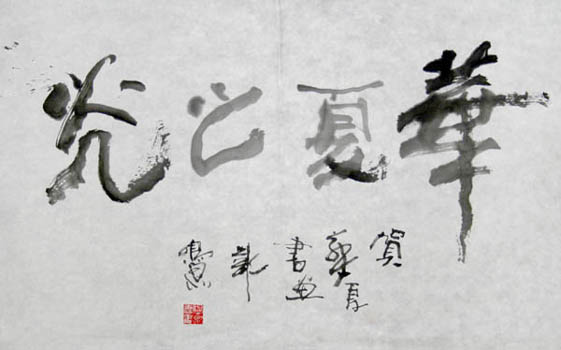 華夏之光
賀
華夏
書画